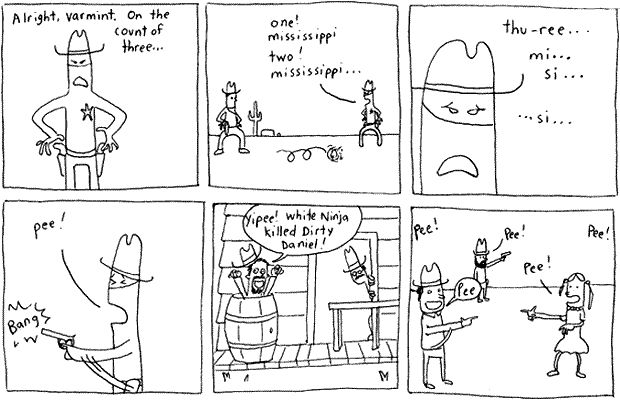 Alright, varmint. On the
count of
three...
one!
mississippi
two!
mississippi...
thu-ree...
mi...
si...
...si...
pee!
Bang
Yipee! White Ninja
killed Dirty
Daniel!
Pee!
Pee!
Pee!
Pee!
Pee